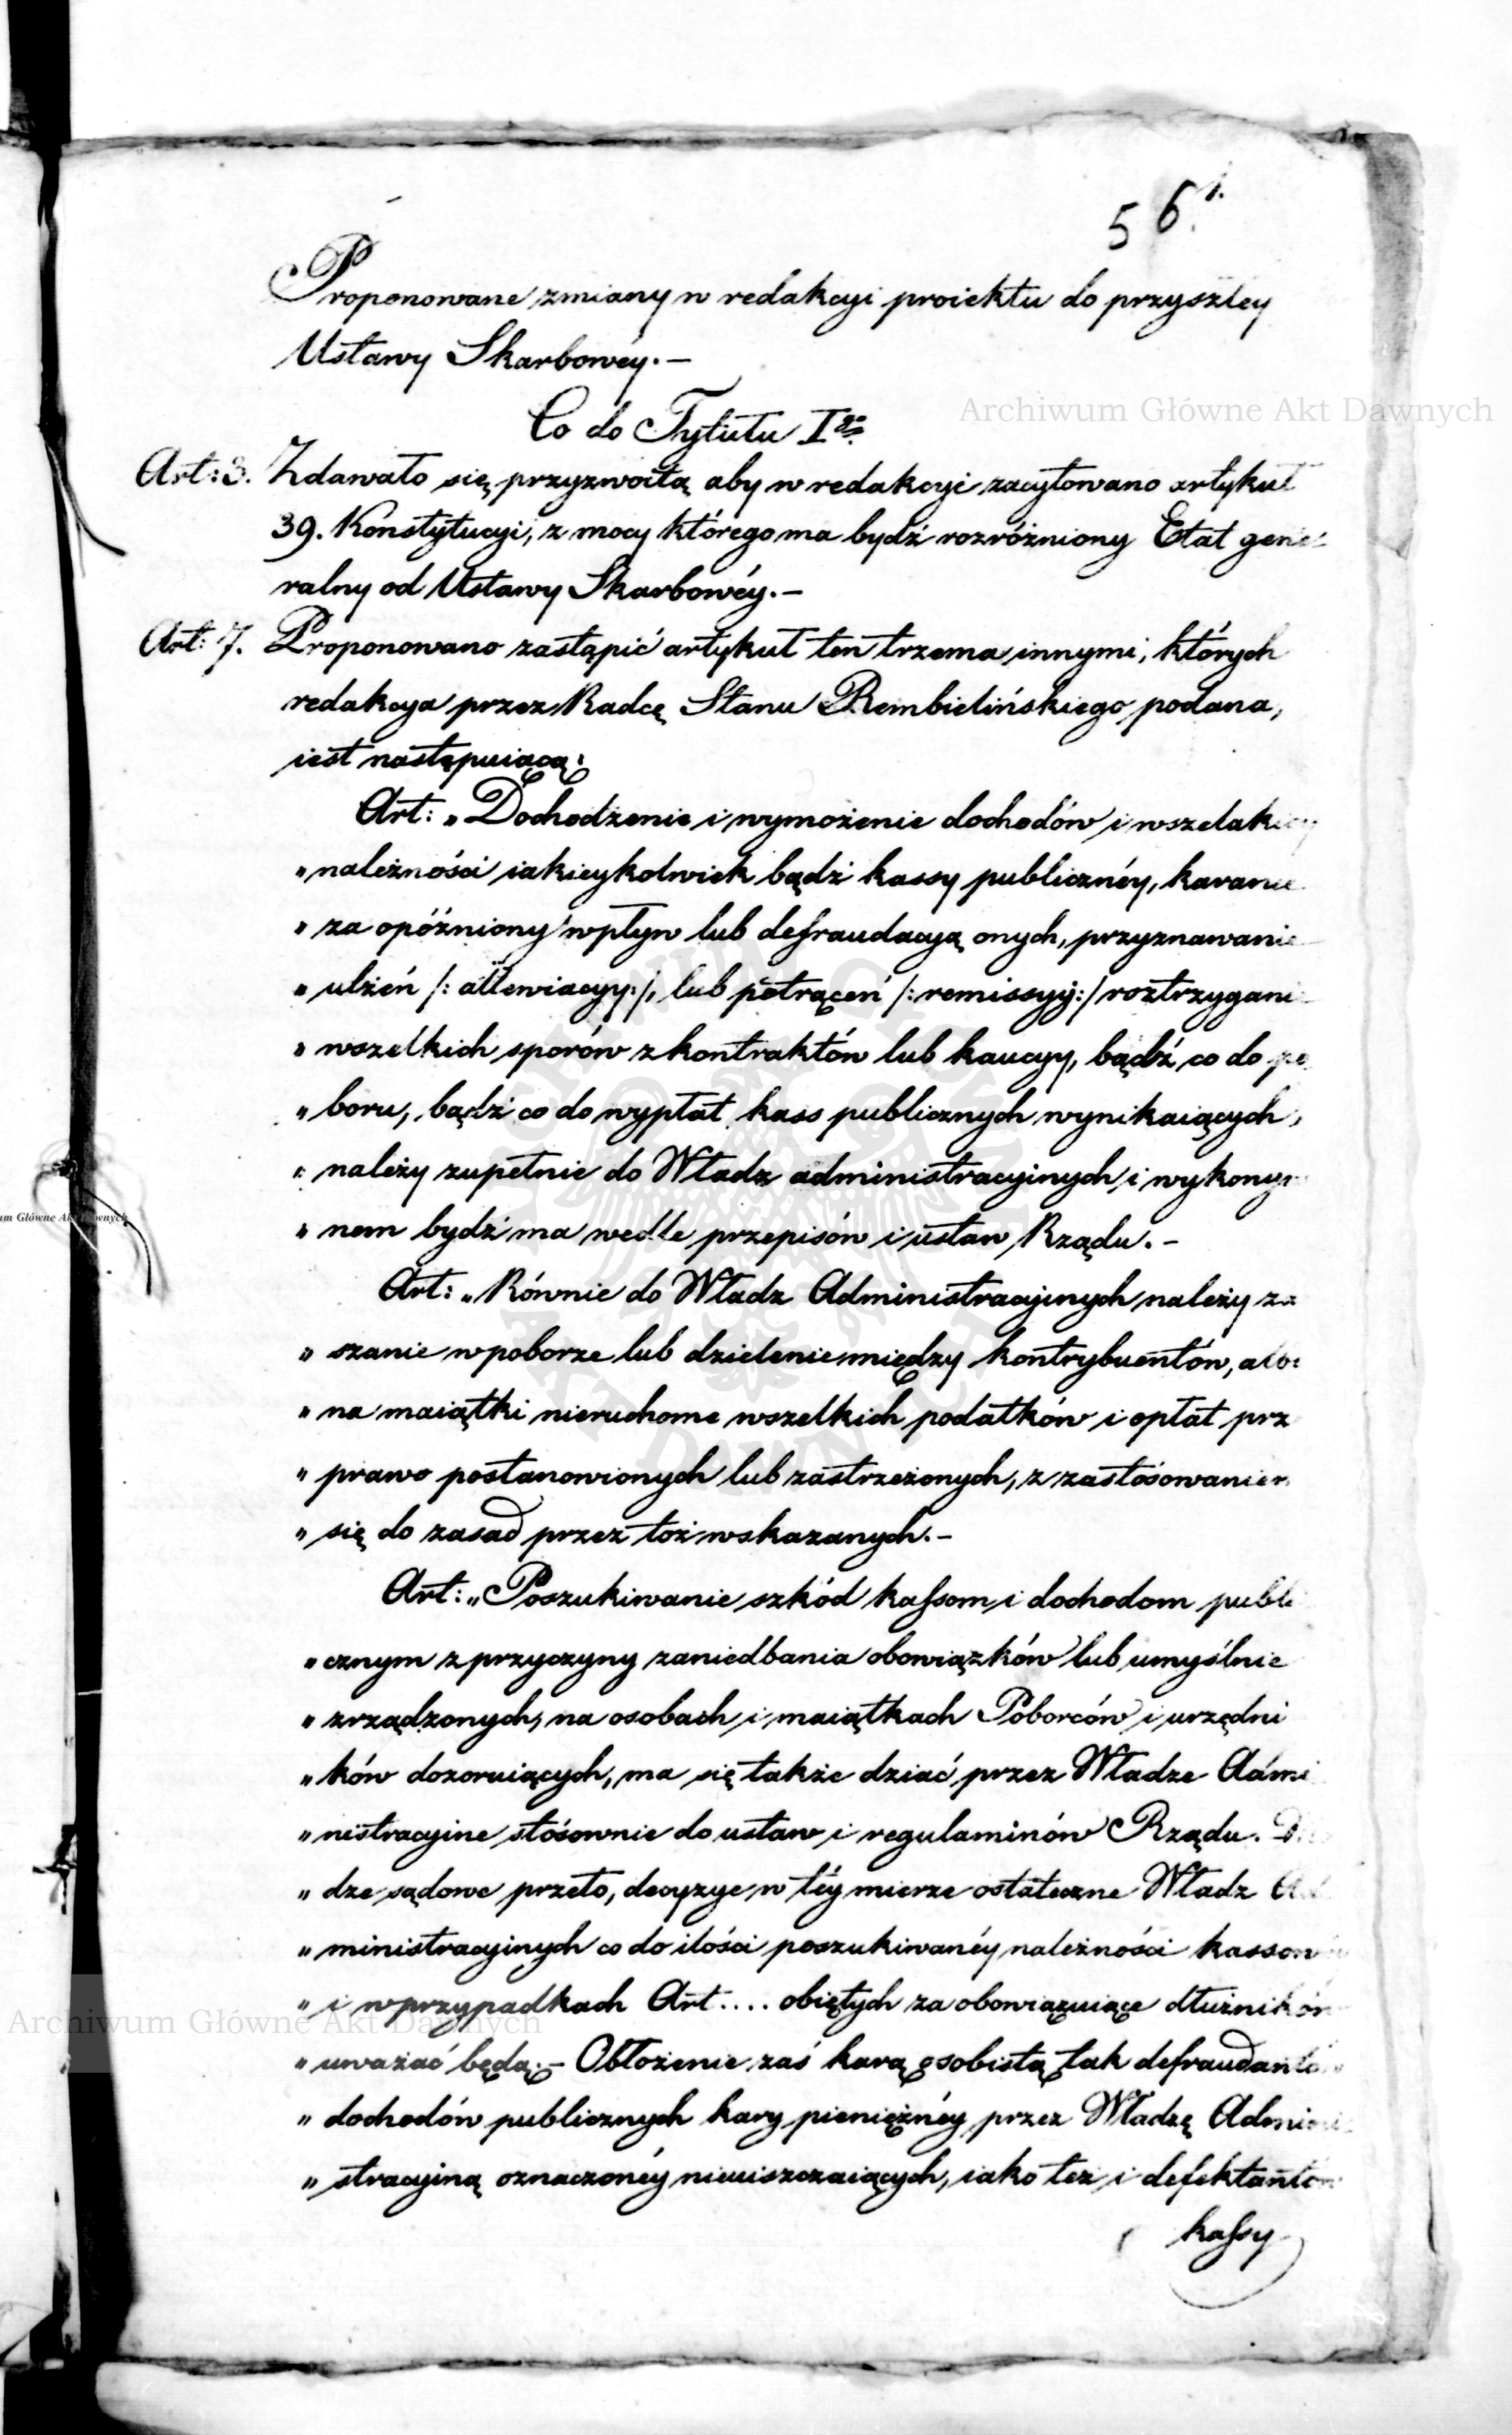 56.
1.
Proponowane zmiany w redakcyi proiektu do przyszłey
Ustawy Skarbowéy.—
Co do Tytułu Igo.
Art: 3. Zdawało się przyzwoitą aby w redakcyi zacytowano artykuł
39. Konstytucyi, z mocy którego ma bydź rozróżniony Etat gene
ralny od Ustawy Skarbowéy.—
Art: 7. Proponowano zastąpić artykuł ten trzema innymi, których
redakcya przez Radcę Stanu Rembielińskiego podana,
iest następuiącą:
Art: „Dochodzenie i wymożenie dochodów i wszelakiey
„ należności iakieykolwiek bądź kassy publicznéy, karanie
„ za opóźniony wpływ lub defraudacyą onych, przyznawanie
„ ulżeń /: allewiacyy:/, lub potrąceń /: remissyy:/ roztrzygani
„ wszelkich sporów z kontraktów lub kaucyy, bądź co do po
„ boru, bądź co do wypłat kass publicznych wynikaiących,
„ należy zupełnie do Władz administracyinych i wykony
„ nem bydź ma wedle przepisów i ustaw Rządu.—
Art: „Równie do Władz Administracyinych należy za
„ szanie w poborze lub dzielenie między kontrybuentów, albo
„ na maiątki nieruchome wszelkich podatków i opłat prz
„ prawo postanowionych lub zastrzeżonych, z zastósowaniem
„ się do zasad przez toż wskazanych.—
Art: „Poszukiwanie szkód kassom i dochodom publi
„ cznym z przyczyny zaniedbania obowiązków lub umyślnie
„ zrządzonych, na osobach i maiątkach Poborców i urzędni
„ ków dozoruiących, ma się także dziać przez Władze Admi
„ nistracyine stósownie do ustaw i regulaminów Rządu.
„ dze sądowe przeto, decyzye w téy mierze ostateczne Władz Ad
„ ministracyinych co do ilości poszukiwanéy należności kassow
„ i w przypadkach Art.... obiętych za obowiązuiące dłużników
„ uważać będą.— Obłożenie zaś karą osobistą tak defraudantów
„ dochodów publicznych kary pieniężnéy przez Władzę Admini
„ stracyiną oznaczonéy nieuiszczaiących, iako też i defektantów
kassy
Archiwum Główne Akt Dawnych
Archiwum Główne Akt Dawnych
um Główne Akt Dawnych
ARCHIWUM GŁÓWNE AKT DAWNYCH